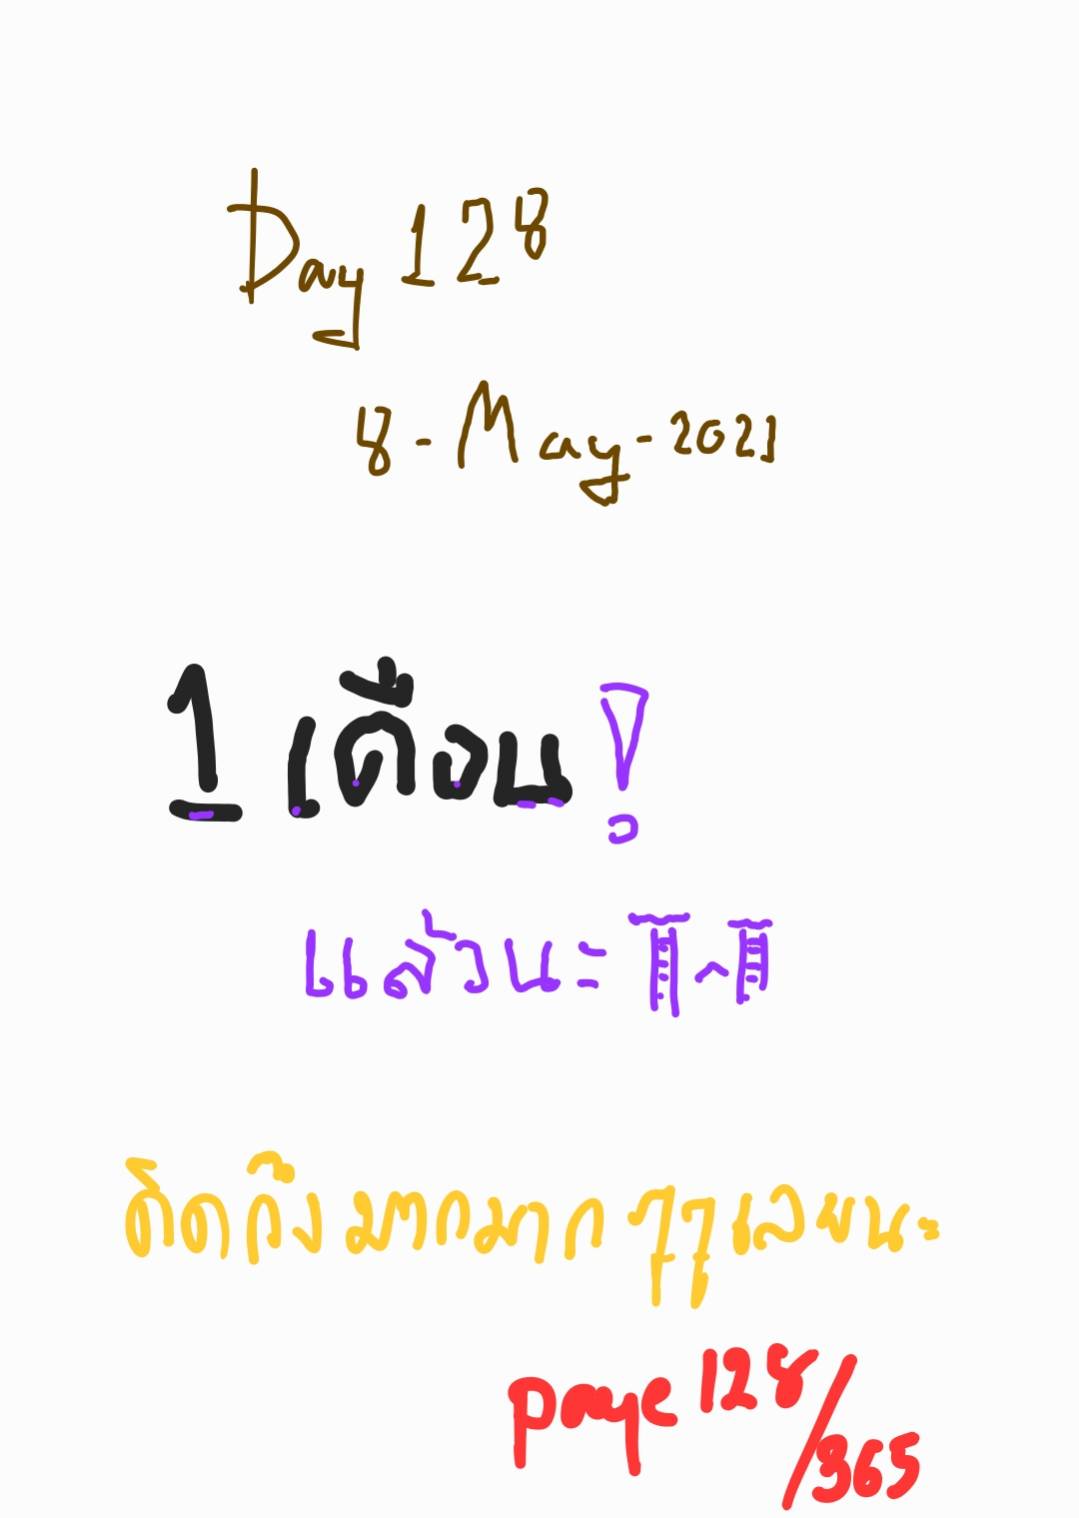 Day 128
8-May-2021
1 เดือน!
แล้วนะ T^T
คิดถึงมากมาก ๆๆเลยนะ
page 128/365